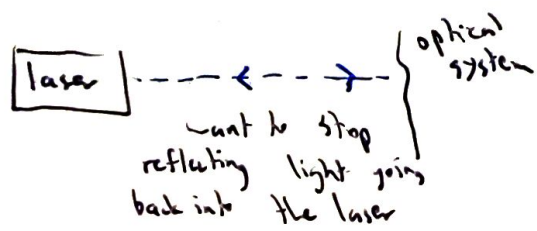 laser
optical
system
want to stop
reflecting light going
back into the laser